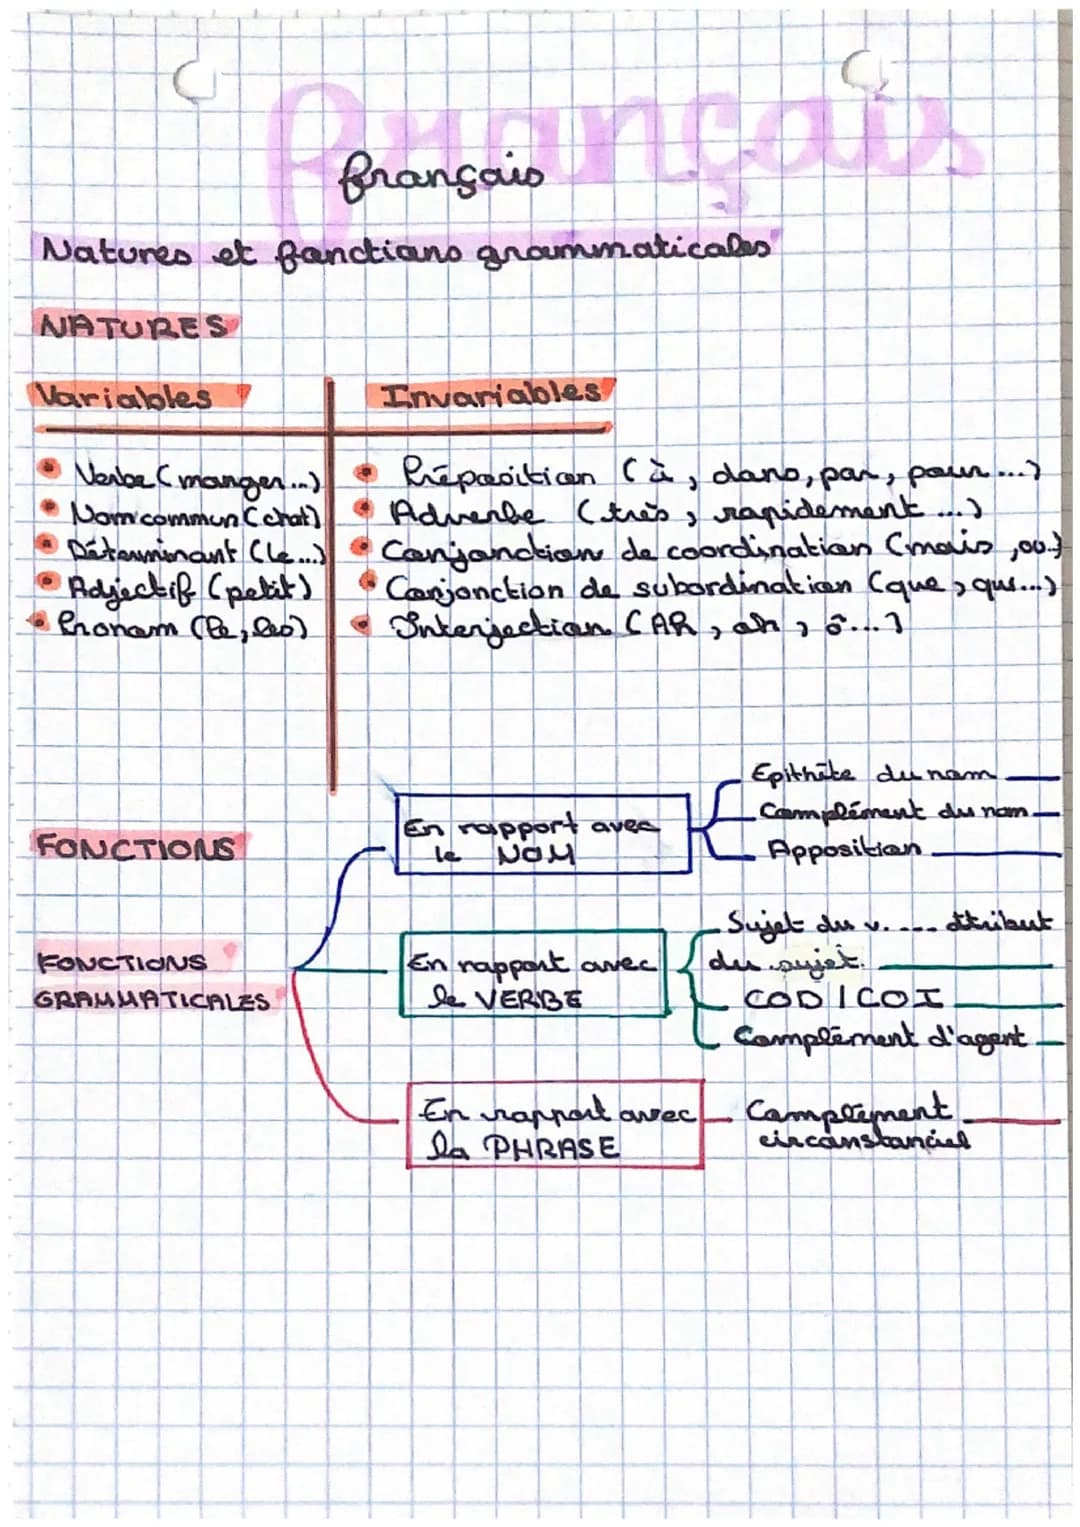 Français
français
Natures et fonctions grammaticales
NATURES
Variables
Invariables
Verbe (manger...)
Nom commun (chat)
Déterminant (le...)
Adjectif (petit)
Pronom (le, les)
Préposition (à, dans, par, pour...)
Adverbe (très, rapidement...)
Conjonction de coordination (mais, ou.)
Conjonction de subordination (que, qui...)
Interjection (AR, ah, ô...)
FONCTIONS
FONCTIONS
GRAMMATICALES
En rapport avec
le NOM
Epithète du nom
Complément du nom
Apposition
En rapport avec
le VERBE
Sujet du v. ... attribut
du sujet.
COD / COI
Complément d'agent
En rapport avec
la PHRASE
Complément
circonstanciel